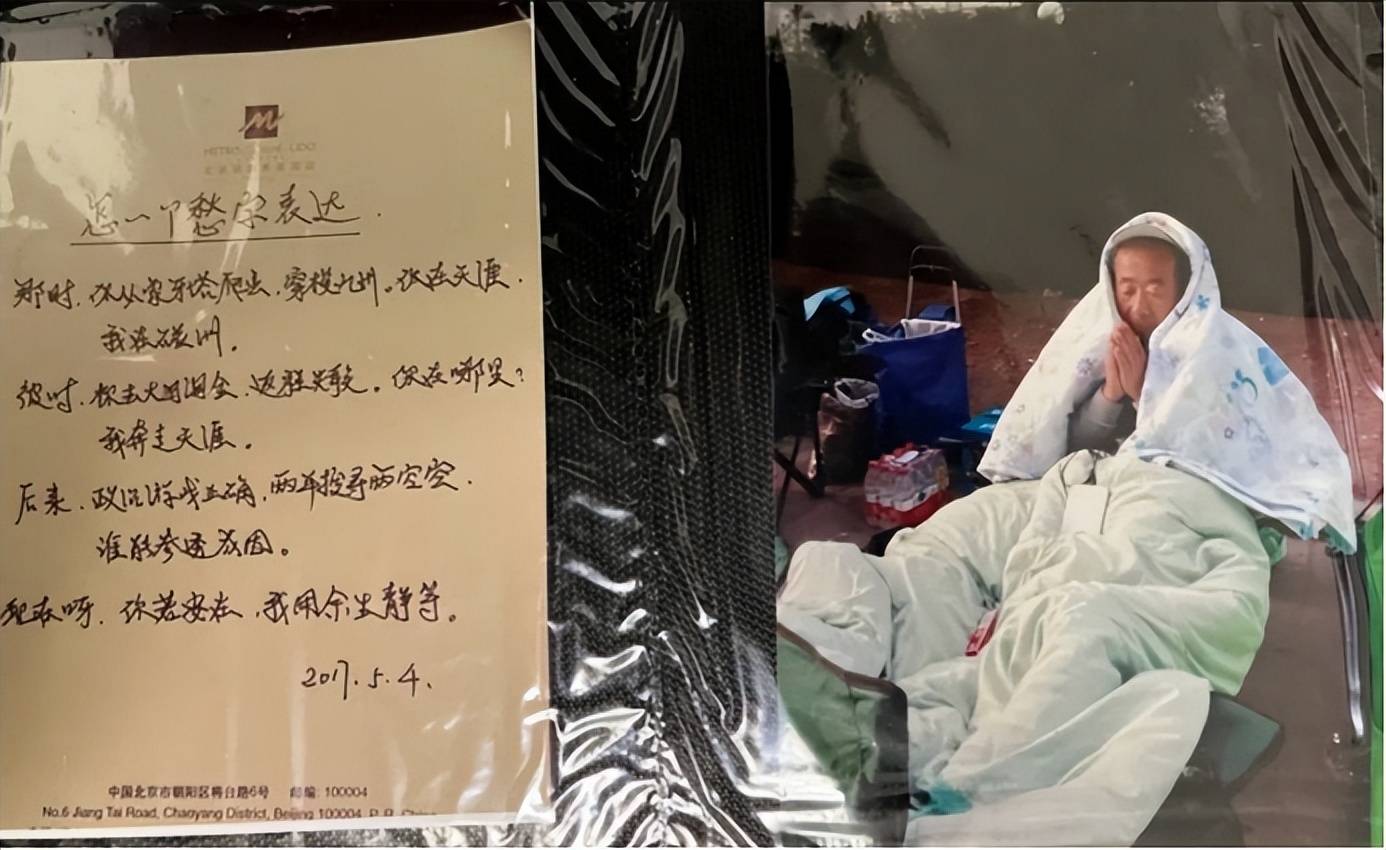 怎一个愁字表达.
那时.你从象牙塔爬出.穿梭九州。你在天涯.
我在磁州。
彼时.你去大马淘金.返程失联。你在哪里?
我奔走天涯。
后来.政治游戏正确.两年搜寻两空空.
谁能参透成因。
现在呀.你若安在.我用余生静等。
2017.5.4.
中国北京市朝阳区将台路6号 邮编: 100004
No.6 Jiang Tai Road, Chaoyang District, Beijing 100004, P. R.